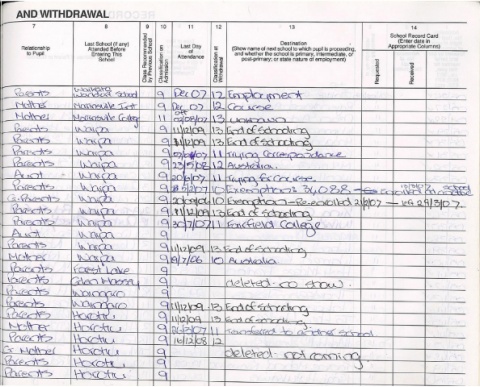 AND WITHDRAWAL
7 8 9 10 11 12 13 14
Relationship to Pupil
Last School (if any) Attended Before Entering This School
Class Recommended by Previous School
Classification on Admission
Last Day of Attendance
Classification at Withdrawal
Destination (Show name of next school to which pupil is proceeding, and whether the school is primary, intermediate, or post-primary; or state nature of employment)
School Record Card (Enter date in Appropriate Columns)
Requested
Received
Parents 9 Dec 07 12 Employment
Mother 9 Dec 07 12 Course
Mother 11 13 unknown
Parents Waipa 9 11/12/09 13 End of Schooling
Parents Waipa 9 11/12/09 13 End of Schooling
Parents Waipa 9 11 Trying Correspondence
Parents Waipa 9 23/5/08 12 Australia.
Aunt Waipa 9 11 Trying for Course
Parents Waipa 9 10 Exemption 34088
Waipa 9 10 Exemption - Re-enrolled 29/3/07.
Parents Waipa 9 11/12/09 13 End of Schooling
Parents Waipa 9 30/7/07 11 Fairfield College
Aunt Waipa 9
Parents Waipa 9 11/12/09 13 End of Schooling
Mother Waipa 9 19/7/06 10 Australia
Parents Forest Lake 9
Parents 9 deleted. no show.
Parents 9
Parents 9 11/12/09 13 End of Schooling
Parents Horotiu 9 11/12/09 13 End of Schooling
Mother Horotiu 9 11 Transferred to another school
Parents Horotiu 9 16/12/08 12
Mother Horotiu 9 deleted. not coming.
Parents Horotiu 9
Parents Horotiu 9